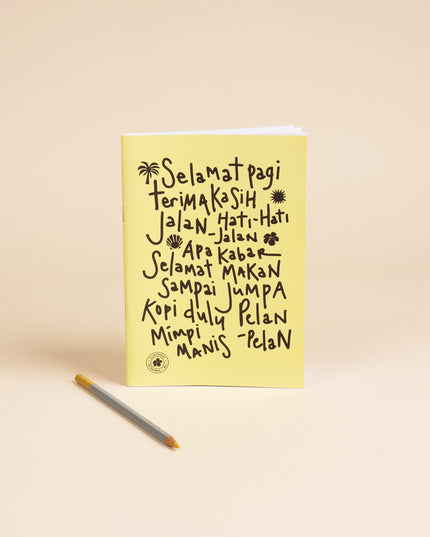 Selamat pagi
teriMA KASiH
JalaN Hati-Hati
-JalaN
Apa KabaR
Selamat MAKAN
SaMpai JUMPA
Kopi dulu PelaN
MiMpi -PelaN
MANiS